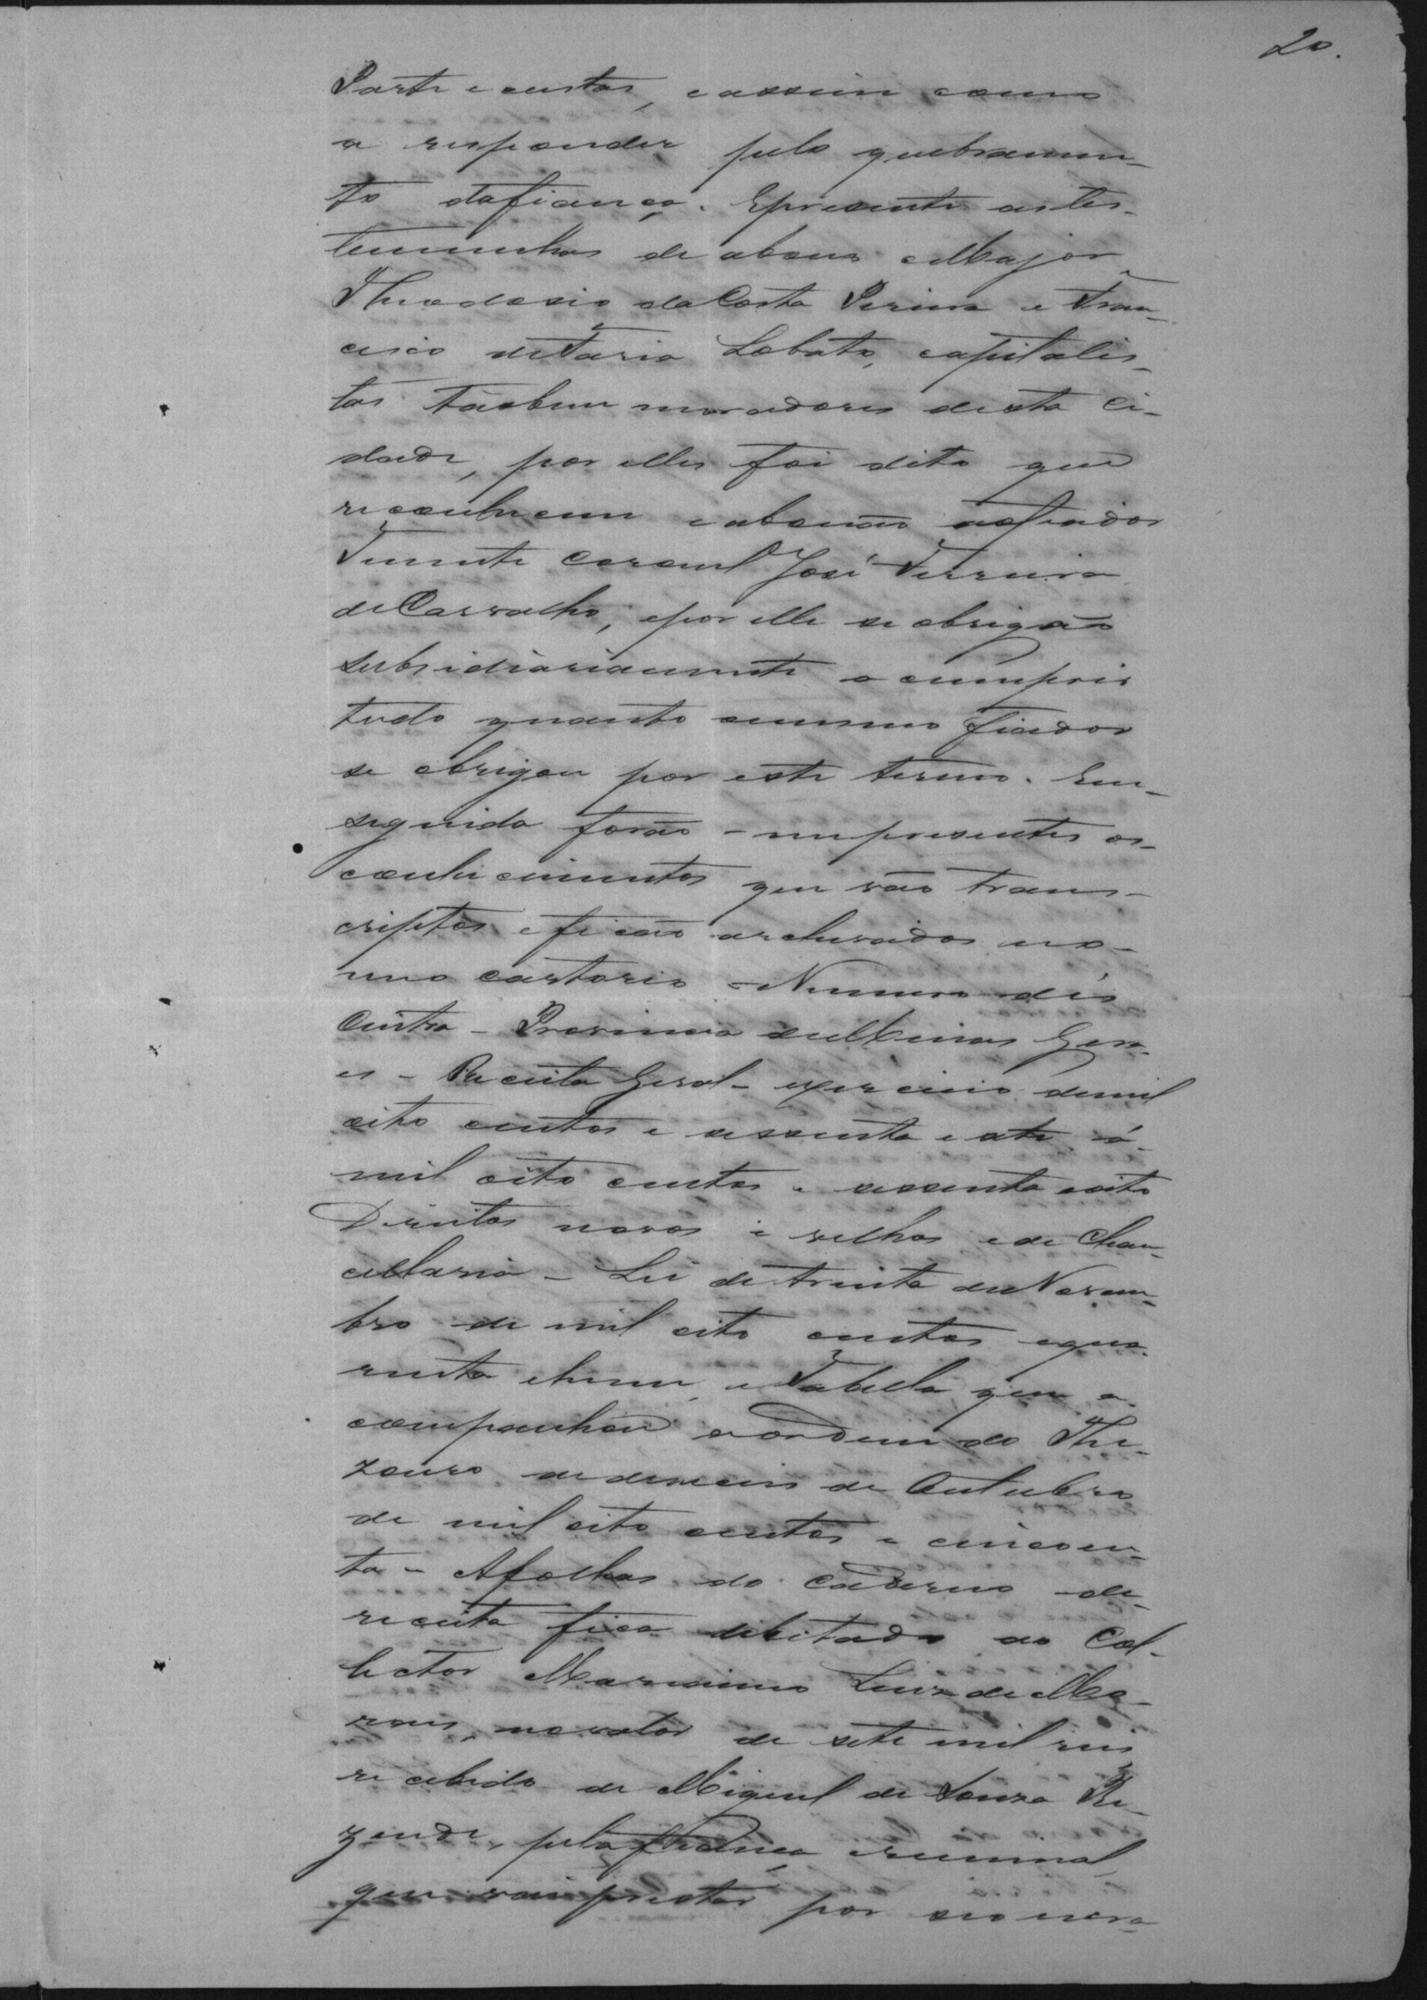 20.
Parte e custas, e assim como
a responder pelo quebramen-
to dafiança. Epresente astes-
temunhas de abono oMajor
Theodosio daCosta Pereira e Fran-
cisco deFaria Lobato, capitalis-
tas tãobem moradores desta Ci-
dade, por elles foi dito que
reconhecem e abonão aofiador
Tenente Coronel José Ferreira
deCarvalho, epor elle se obrigão
subsidiariamente a cumprir
tudo quanto omesmo fiador
se obrigou por este termo. Em-
seguida forão-me presentes os-
conhecimentos que vão trans-
criptos eficão archivados no-
meo cartorio - Numero dés
Cento - Provincia deMinas Gera-
es - Receita Geral - exercicio demil
oito centos e sessenta e sete á
mil oito centos e sessenta eoito
Direitos novos e velhos e de Chan-
cellaria - Lei de trinta deNovem-
bro de mil oito centos equa-
renta ehum, e Tabella que a-
companhou aordem do The-
zouro de deseceis de Outubro
de mil oito centos e cincoen-
ta - Afolhas do Caderno de-
receita fica debitado ao Col-
lector Marciano Luiz de Mo-
raes, novalor de sete mil reis
recebido de Miguel de Souza Re-
zende, pelafiança criminal
que vai prestar por seo